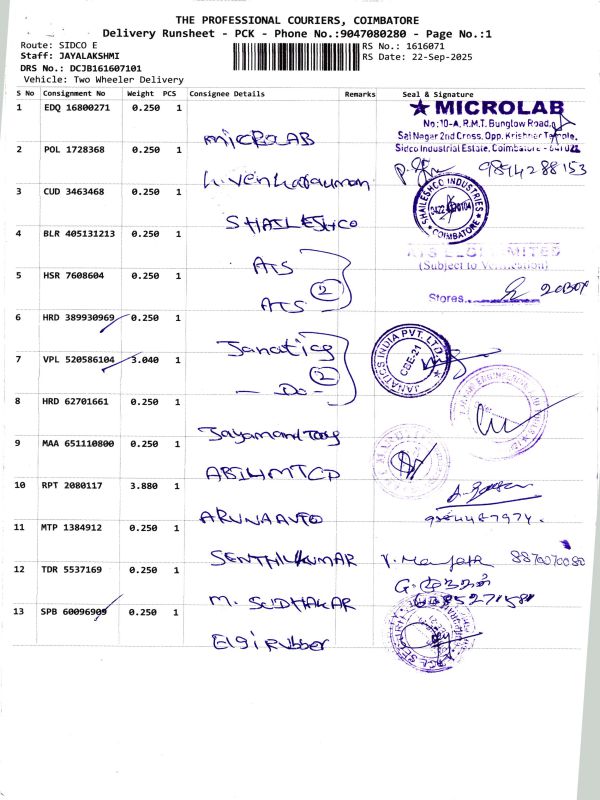 THE PROFESSIONAL COURIERS, COIMBATORE
Delivery Runsheet - PCK - Phone No.:9047080280 - Page No.:1
Route: SIDCO E
RS No.: 1616071
Staff: JAYALAKSHMI
RS Date: 22-Sep-2025
DRS No.: DCJB161607101
Vehicle: Two Wheeler Delivery
S No Consignment No Weight PCS Consignee Details Remarks Seal & Signature
1 EDQ 16800271 0.250 1 MICROLAB
★ MICROLAB
No:10-A, R.M.T. Bunglow Road,
Sai Nagar 2nd Cross, Opp. Krishnar Temple,
Sidco Industrial Estate, Coimbatore - 641021
2 POL 1728368 0.250 1 h.venkataraman
9894288153
3 CUD 3463468 0.250 1 SHAILESHCO
SHAILESHCO INDUSTRIES
COIMBATORE
4 BLR 405131213 0.250 1 ATS
ATS ELGI LIMITED
(Subject to Verification)
5 HSR 7608604 0.250 1 ATS
2
Stores
6 HRD 389930969 0.250 1 Janatics
JANATICS INDIA PVT. LTD
CBE-21
7 VPL 520586104 3.040 1 - Do -
2
8 HRD 62701661 0.250 1
9 MAA 651110800 0.250 1
10 RPT 2080117 3.880 1 ARUNA AUTO
11 MTP 1384912 0.250 1 SENTHILKUMAR
8870070080
12 TDR 5537169 0.250 1 M. SUDHAKAR
13 SPB 60096909 0.250 1 Elgi Rubber